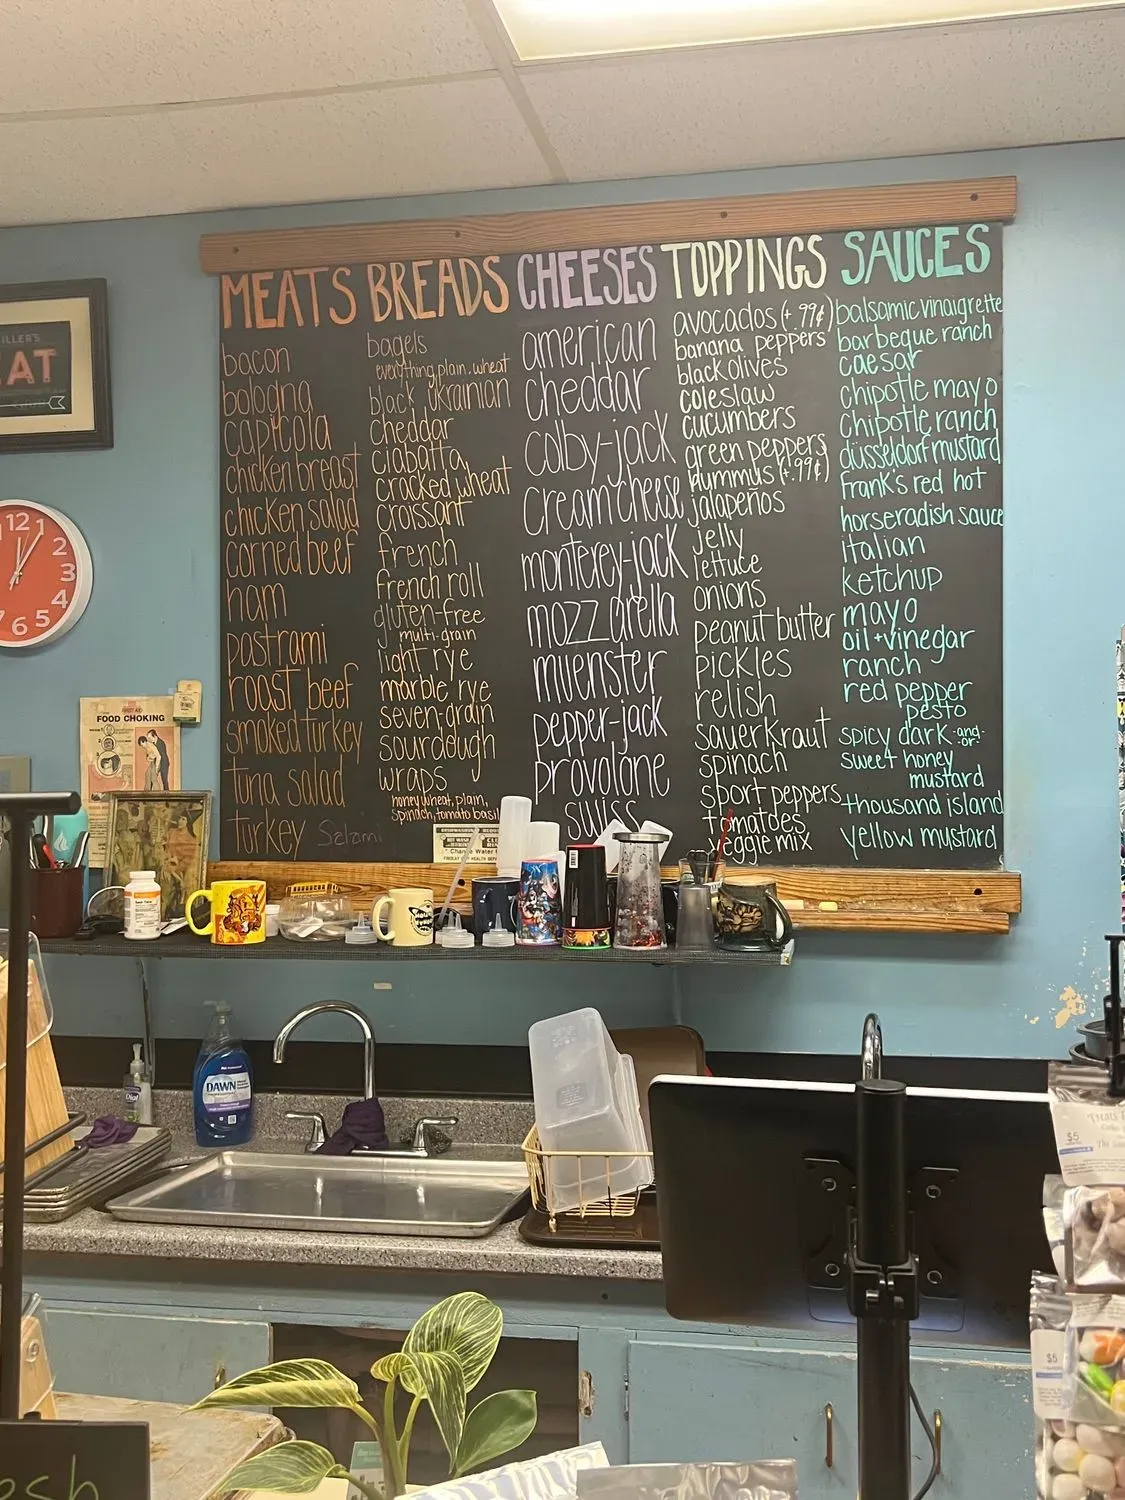 MEATS
bacon
bologna
capicola
chicken breast
chicken salad
corned beef
ham
pastrami
roast beef
smoked turkey
tuna salad
turkey Salami
BREADS
bagels
everything, plain, wheat
black Ukrainian
cheddar
ciabatta
cracked wheat
croissant
french
french roll
gluten-free
multi-grain
light rye
marble rye
seven-grain
sourdough
wraps
honey wheat, plain,
spinach, tomato basil
CHEESES
american
cheddar
colby-jack
cream cheese
monterey-jack
mozzarella
muenster
pepper-jack
provolone
swiss
TOPPINGS
avocados (+.99¢)
banana peppers
black olives
coleslaw
cucumbers
green peppers
hummus (+.99¢)
jalapeños
jelly
lettuce
onions
peanut butter
pickles
relish
sauerkraut
spinach
sport peppers
tomatoes
veggie mix
SAUCES
balsamic vinaigrette
barbeque ranch
caesar
chipotle mayo
chipotle ranch
düsseldorf mustard
frank's red hot
horseradish sauce
italian
ketchup
mayo
oil + vinegar
ranch
red pepper
pesto
spicy dark -and-
or-
sweet honey
mustard
thousand island
yellow mustard
ILLER'S
EAT
12
1
2
3
4
5
6
7
FIRST AID
FOOD CHOKING
Change Water
DAWN
Dial
$5
$5
esh